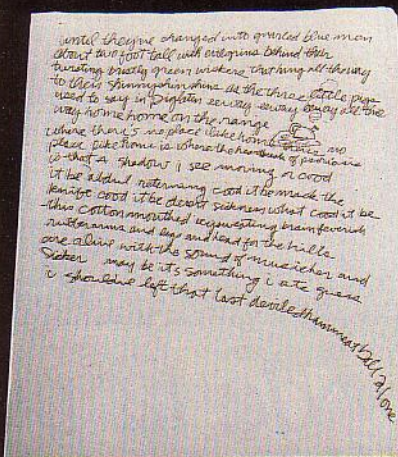 until they've changed into gnarled blue men
about two foot tall with evil grins behind their
twisting bristly green wiskers that hang all the way
to their shinnyshin shins as the three little pigs
used to say in Dighton eeway eeway eeway all the
way home home on the range
where there's no place like home there's no
place like home is where the of psoriasis
is that a shadow i see moving or cood
it be abdul returning cood it be mack the
knife cood it be desert sickness what cood it be
this cottonmouthed brain feverish
arms and legs and head for the hills
are alive with the sound of and
sicker may be it's something i ate guess
i shouldve left that last deviledhammeatball alone